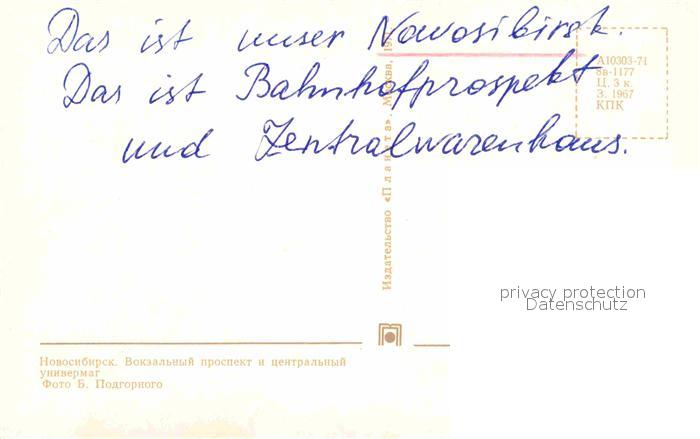 Das ist unser Nowosibirsk.
Das ist Bahnhofprospekt
und Zentralwarenhaus.
А10303-71
8в-1177
Ц. 3 к.
З. 1967
КПК
Издательство «Планета». Москва, 19
privacy protection
Datenschutz
Новосибирск. Вокзальный проспект и центральный
универмаг
Фото Б. Подгорного